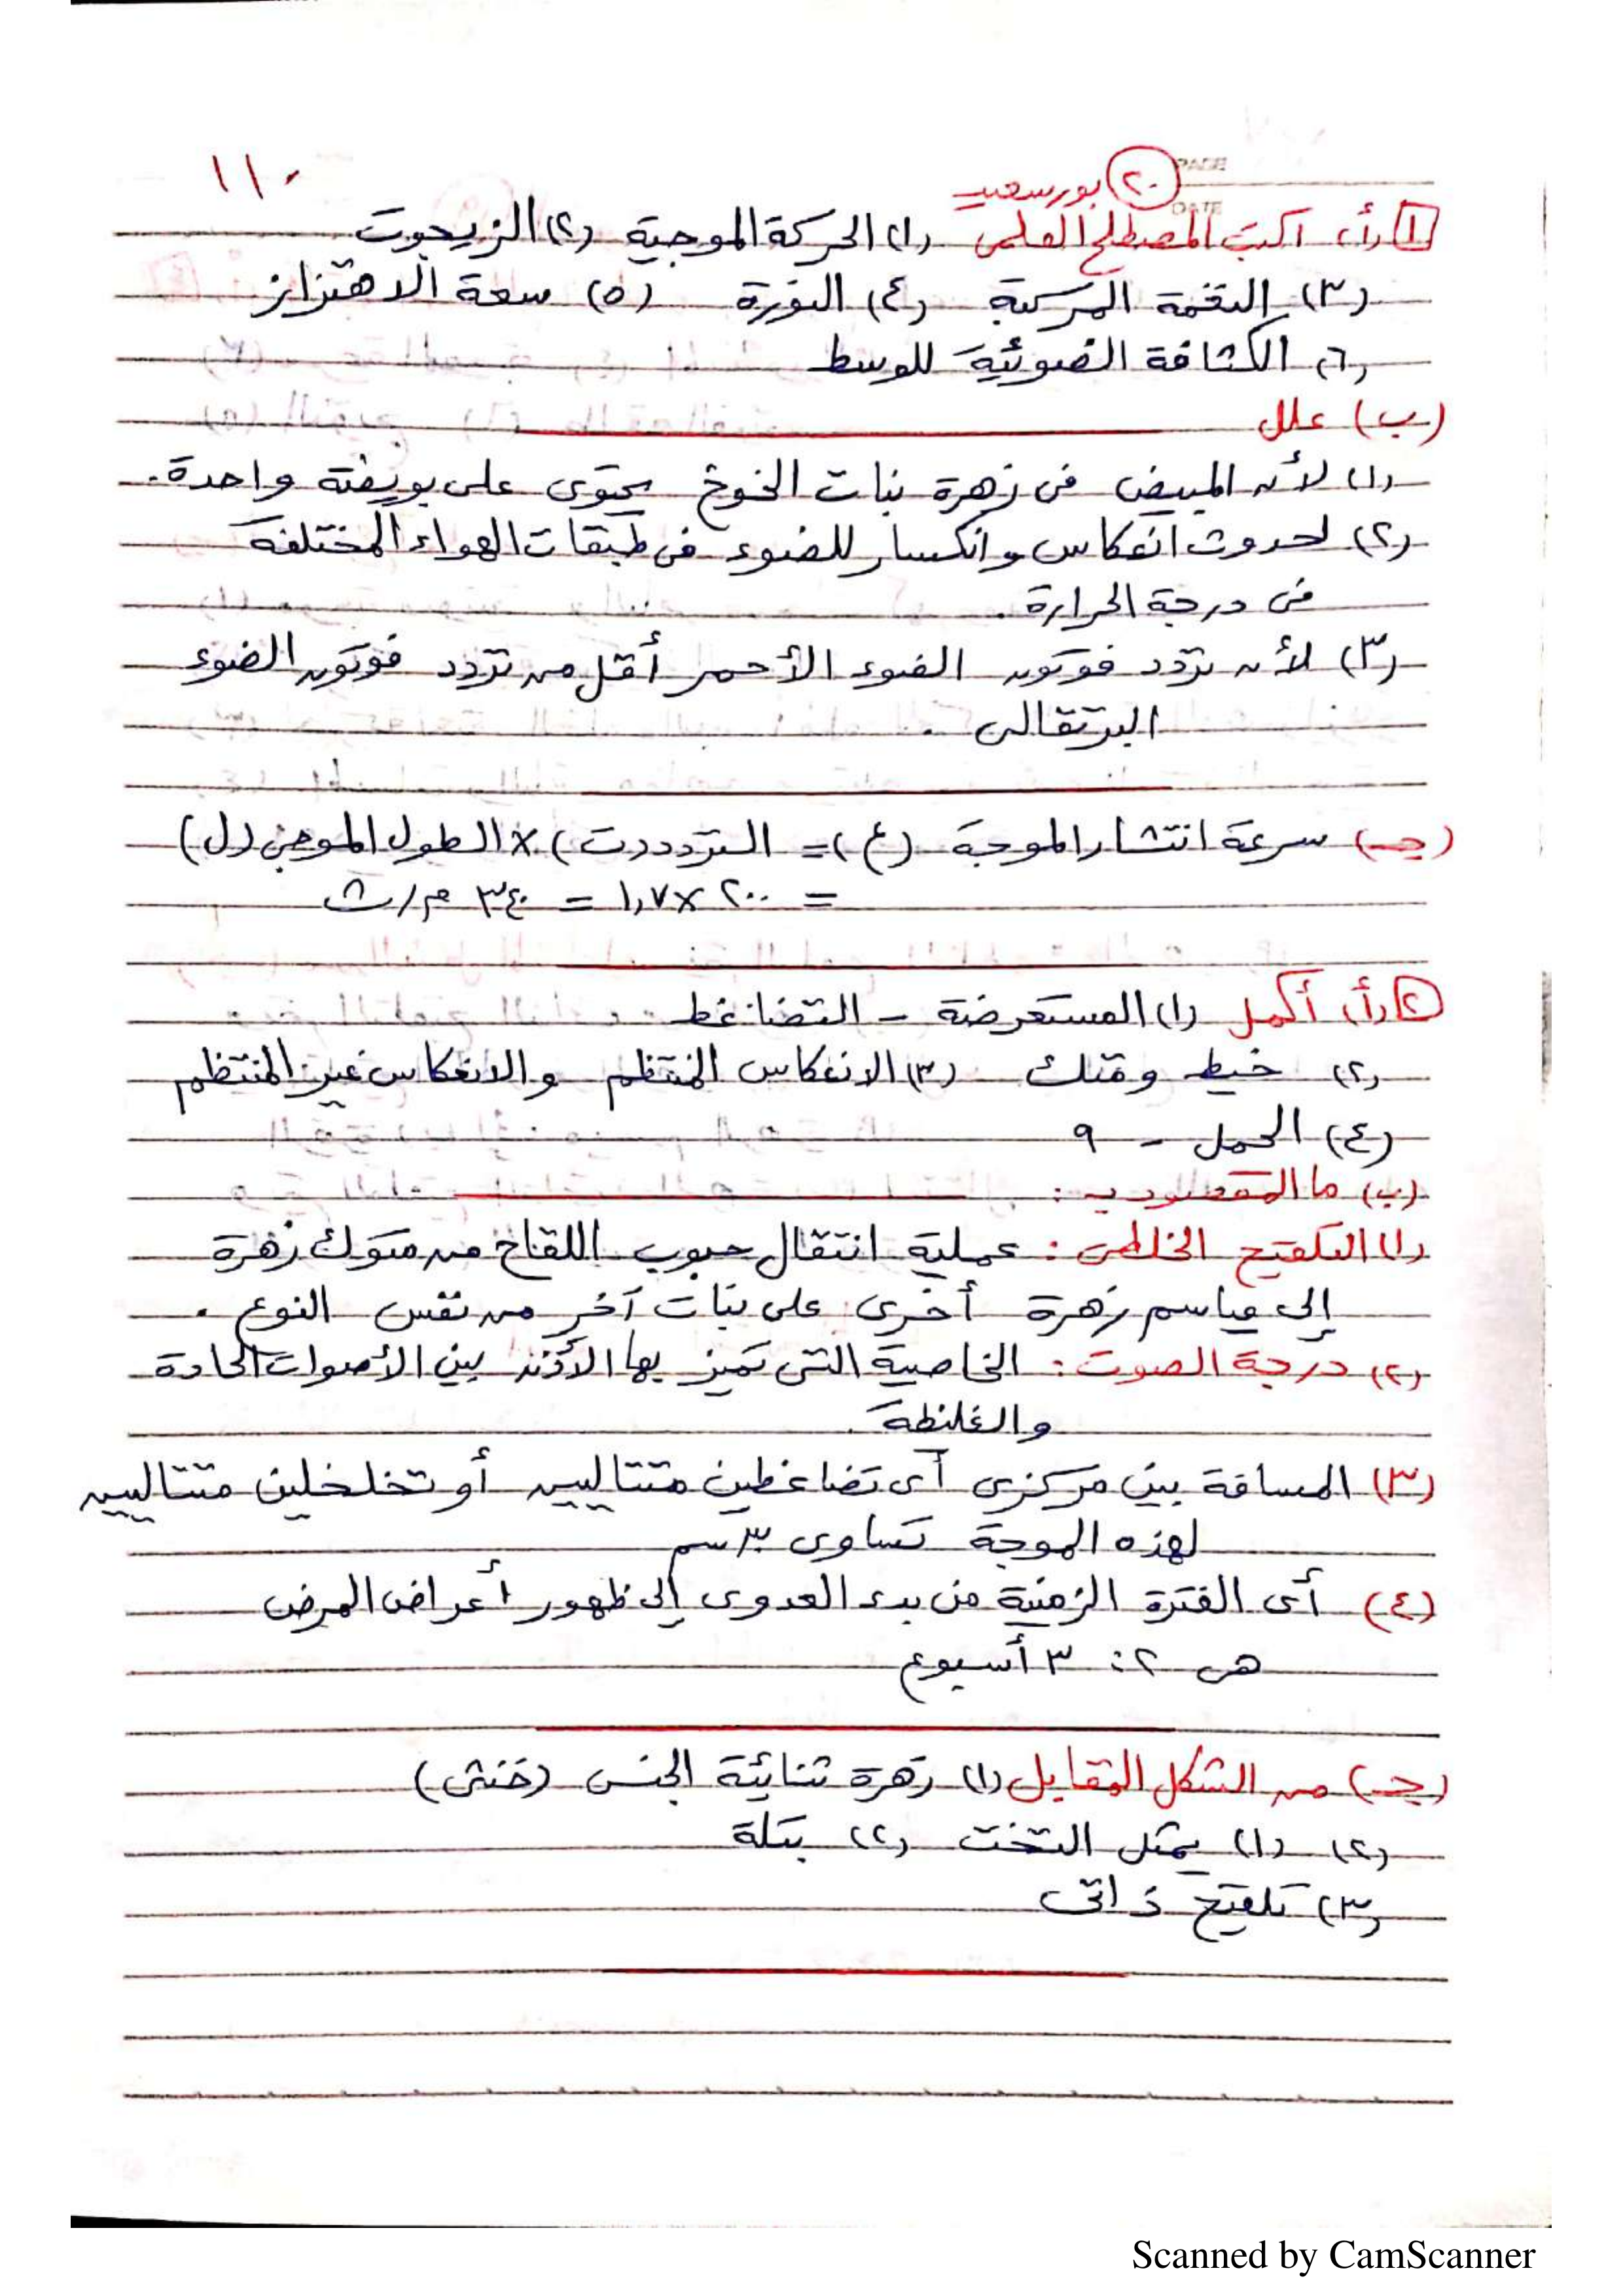 ١١٠
PAGE
DATE
(٢٠) بورسعيد
١ (أ) اكتب المصطلح العلمى (١) الحركة الموجية (٢) الزيجوت
(٣) النغمة المركبة (٤) النورة (٥) سعة الاهتزاز
(٦) الكثافة الضوئية للوسط
(ب) علل
(١) لأن المبيض فى زهرة نبات الخوخ يحتوى على بويضة واحدة.
(٢) لحدوث انعكاس وانكسار للضوء فى طبقات الهواء المختلفة
فى درجة الحرارة.
(٣) لأن تردد فوتون الضوء الأحمر أقل من تردد فوتون الضوء
البرتقالى .
(جـ) سرعة انتشار الموجة (ع) = التردد (ت) × الطول الموجى (ل)
= ٢٠٠ × ١,٧ = ٣٤٠ م/ث
٢ (أ) أكمل (١) المستعرضة - التضاغط
(٢) خيط ومتك (٣) الانعكاس المنتظم والانعكاس غير المنتظم
(٤) الحمل - ٩
(ب) ما المقصود بـ :
(١) التلقيح الخلطى : عملية انتقال حبوب اللقاح من متوك زهرة
إلى مياسم زهرة أخرى على نبات آخر من نفس النوع .
(٢) درجة الصوت : الخاصية التى تميز بها الأذن بين الأصوات الحادة
والغليظة .
(٣) المسافة بين مركزى أى تضاغطين متتاليين أو تخلخلين متتاليين
لهذه الموجة تساوى ٣ سم
(٤) أى الفترة الزمنية من بدء العدوى إلى ظهور أعراض المرض
هى ٢ : ٣ أسبوع
(جـ) من الشكل المقابل (١) زهرة ثنائية الجنس (خنثى)
(٢) (١) يمثل التخت (٢) بتلة
(٣) تلقيح ذاتى
Scanned by CamScanner